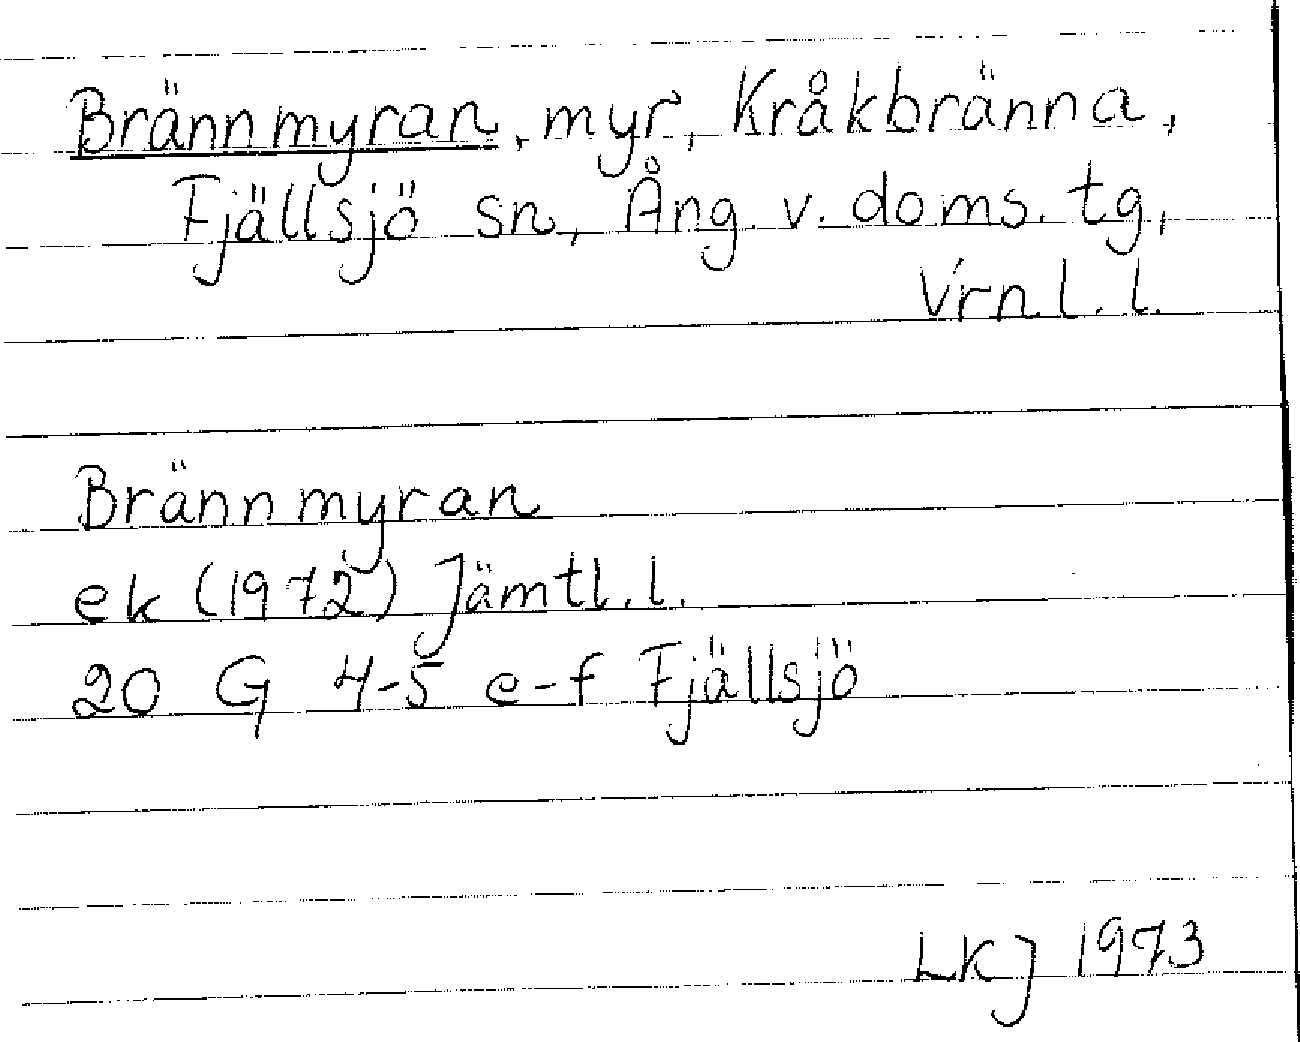 Brännmyran, myr, Kråkbränna,
Fjällsjö sn, Ång. v. doms. tg,
Vrnl. l.
Brännmyran
ek (1972) Jämtl. l.
20 G 4-5 e-f Fjällsjö
LKJ 1973